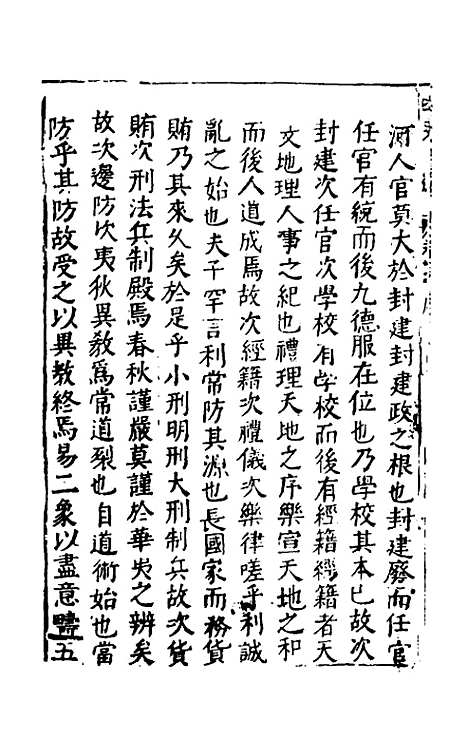 河人官莫大於封建封建政之根也封建廢而任官
任官有統而後九德服在位也乃學校其本也故次
封建次任官次學校有學校而後有經籍經籍者天
文地理人事之紀也禮理天地之序樂宣天地之和
而後人道成焉故次經籍次禮儀次樂律嗟乎利誠
亂之始也夫子罕言利常防其源也長國家而務貨
賄乃其來久矣於是乎小刑明刑大刑制兵故次貨
賄次刑法兵制殿焉春秋謹嚴莫謹於華夷之辨矣
故次邊防次夷狄異教為常道裂也自道術始也當
防乎其防故受之以異教終焉易二象以盡意疇五